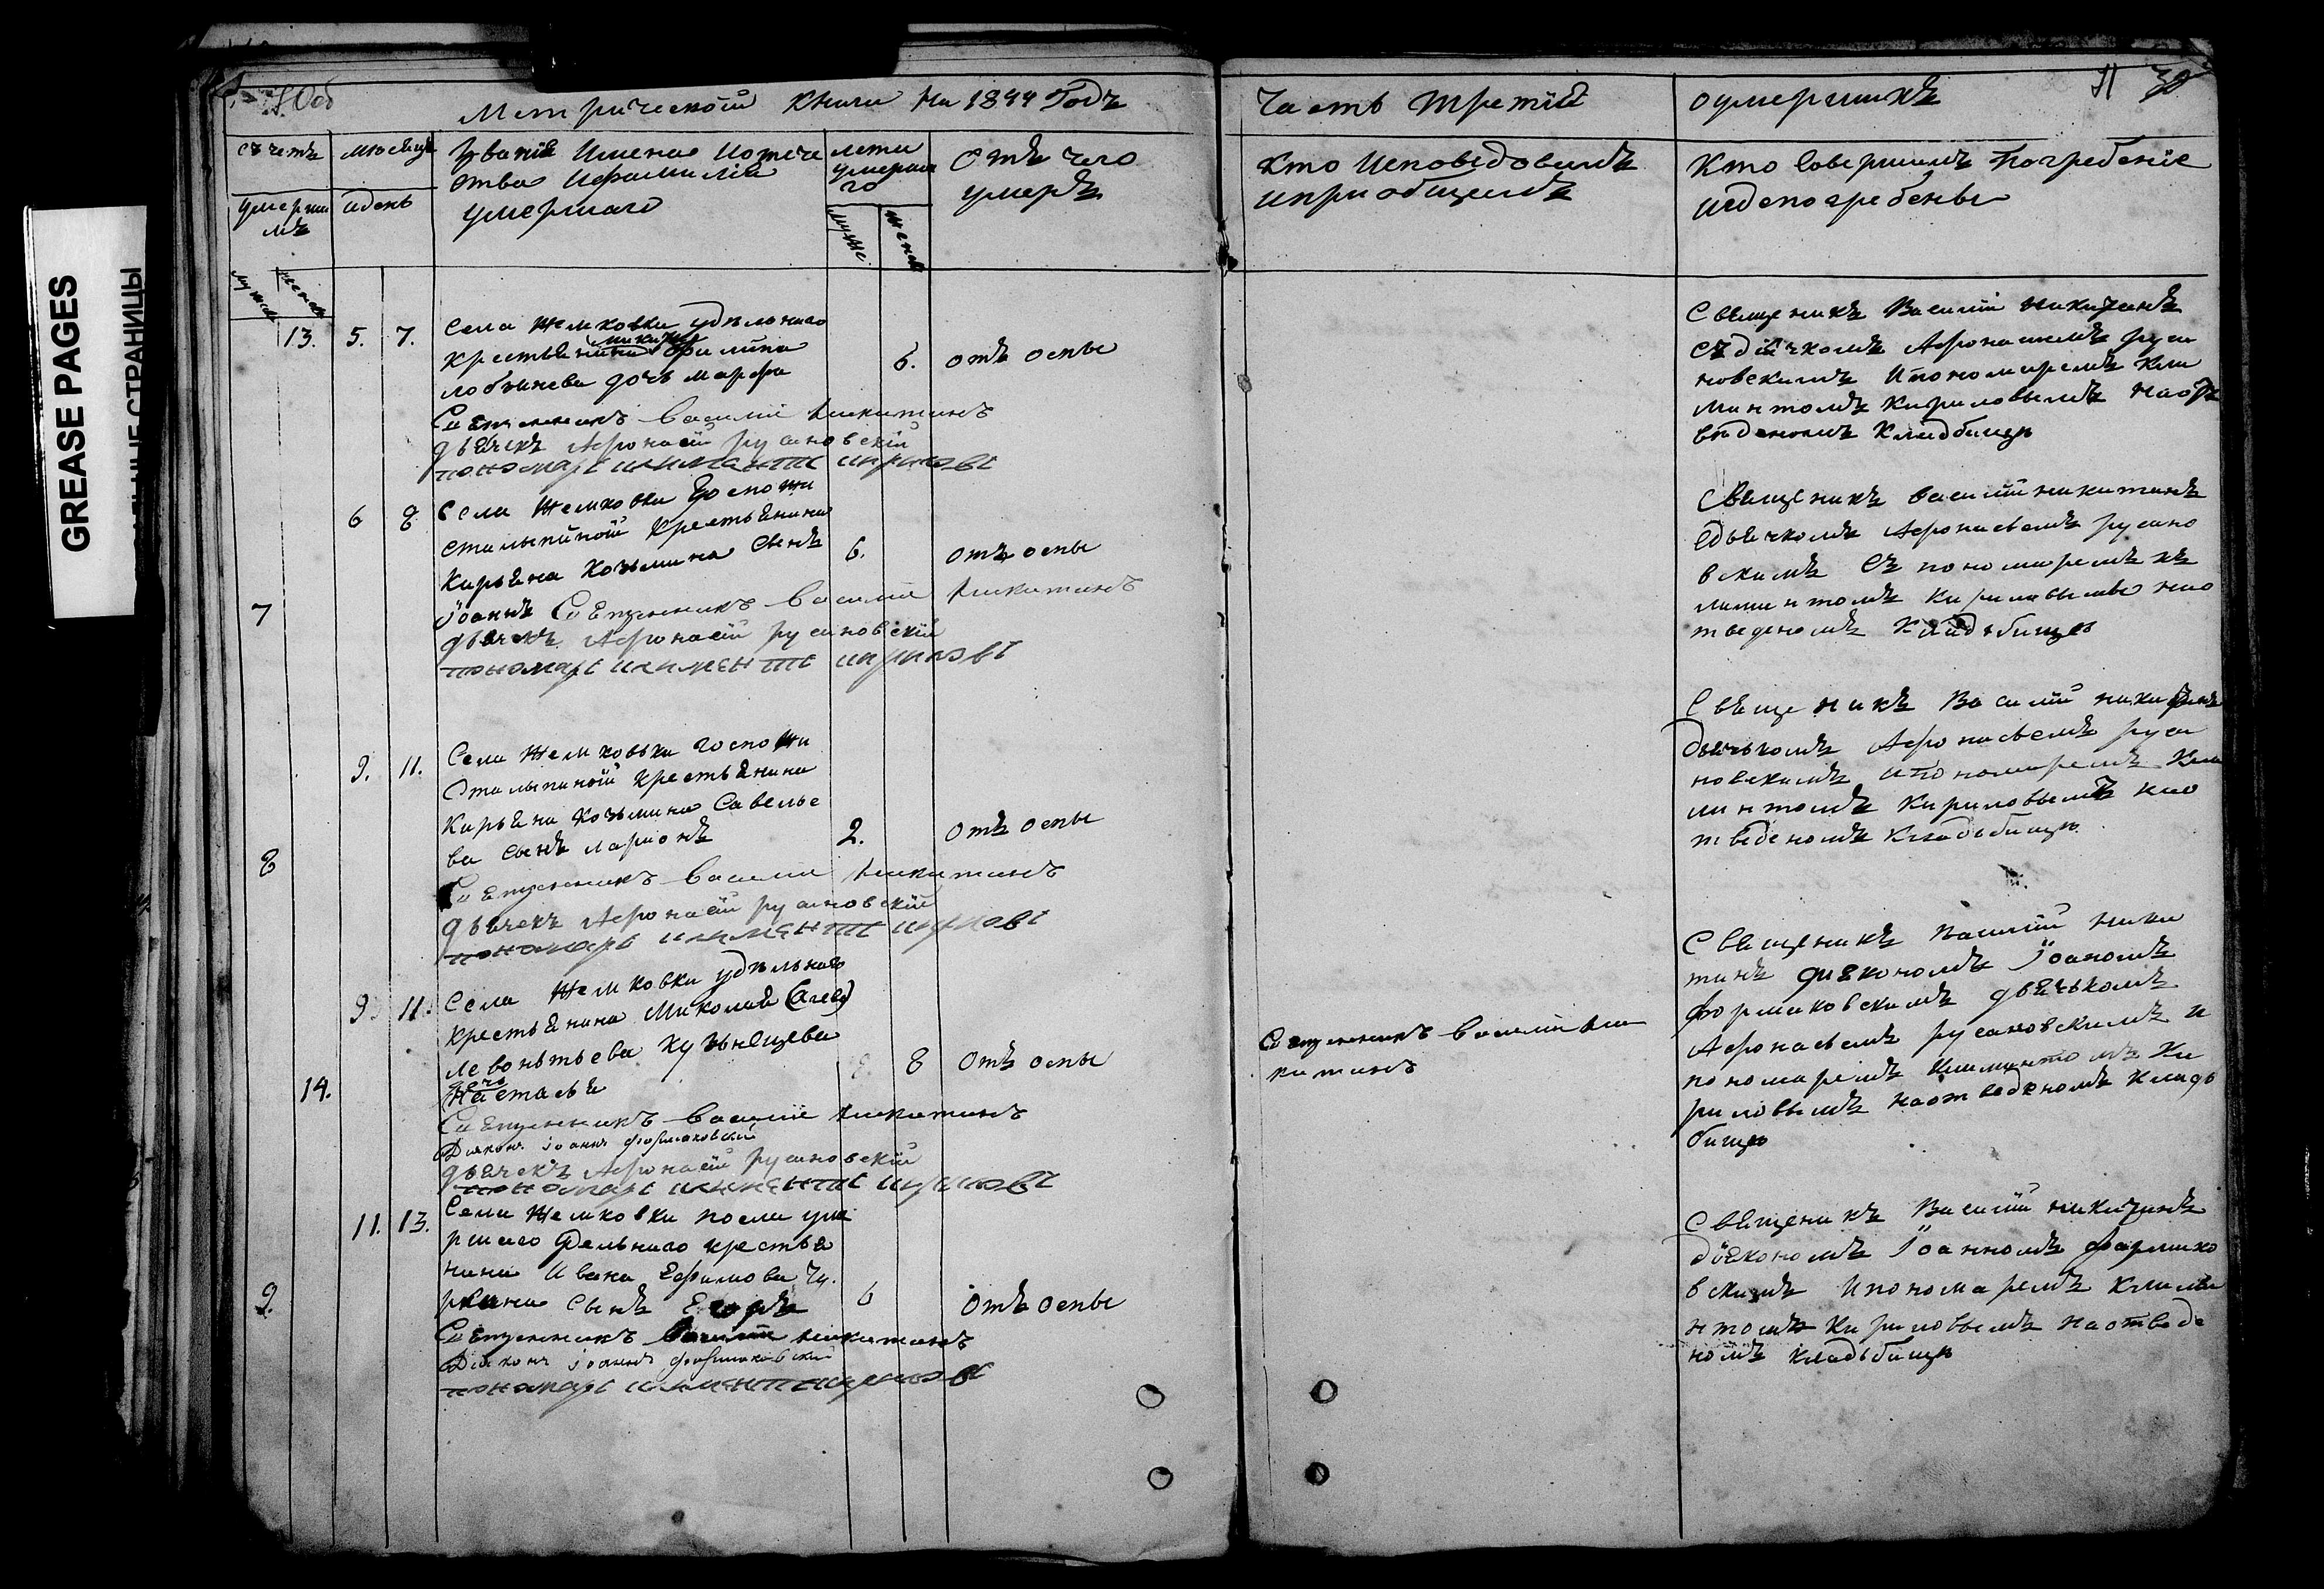 GREASE PAGES
Метрической книги на 1844 Годъ
Часть третий
оумершихъ
31
счетъ
умерши
мъ
мужес
женск
месяцъ
идень
Звание Имена иотече
ства ифамилия
умершаго
лета
умерша
го
мужс.
женск
Отъ чего
умеръ
Кто исповедовалъ
иприобщалъ
Кто совершилъ погребение
игдепогребены
13. 5. 7.
Села Шемховки удельнаго
крестьенина Филипа
дочь марфа
6. отъ оспы
Священникъ Василий Никитинъ
дьячекъ Афонасій русановскій
пономарь климентъ кириловъ
Свещеникъ Василій никитинъ
съдіячкомъ Афонасиемъ руса
новскимъ Ипономаремъ Кли
минтомъ Кириловымъ наот
веденомъ Кладбище
7 6 8
Села Шемховки Госпожи
Сталыпиной Крестьенина
Кирьена Козьмина Сынъ
іоаннъ
6. отъ оспы
Священникъ Василій Никитинъ
дьячекъ Афонасій русановскій
пономарь климентъ кириловъ
Свещеникъ василий никитинъ
сдьечкомъ Афонасьемъ русано
вскимъ Съ пономаремъ къ
лиминтомъ Кириловымъ нао
тведеномъ Кладъбище
8 9. 11.
Села Шемховьки госпожи
Сталыпиной Крестьенина
Кирьена Козьмина Савелье
ва сынъ ларионъ
2. Отъ оспы
Священникъ Василій Никитинъ
дьячекъ Афонасій русановскій
пономарь климентъ кириловъ
Свещеникъ Василій никитинъ
дьечькомъ Афонасьемъ руса
новскимъ ипономаремъ Кли
минтомъ Кириловымъ нао
тведеномъ Кладьбище
14. 9. 11.
Села Шемховки удельнаго
Крестьенина Миколая
Левонътьева Кузьнецева
дочь
Настасья
8 Отъ оспы
Священникъ Василій Никитинъ
Дияконъ іоаннъ формаковский
дьячекъ Афонасій русановскій
пономарь климентъ кириловъ
Священникъ Василій Ни
китинъ
Свещеникъ Василій Ники
тинъ диекономъ іоаномъ
формаковскимъ дьечькомъ
Афонасьемъ русановскимъ и
пономаремъ Климинтомъ Ки
риловымъ наотведеномъ Кладь
бище
9. 11. 13.
Села Шемховки посли уме
ршаго Удельнаго крестье
нина Ивана Ефимова Чу.
ркина Сынъ Егоръ
6 Отъ оспы
Священникъ Василій Никитинъ
Дияконъ іоаннъ формаковский
пономарь климентъ кириловъ
Свещеникъ Василій никитинъ
діекономъ Іоанномъ фармако
вскимъ Ипономаремъ Климе
нтомъ Кириловымъ наотведе
номъ Кладьбище